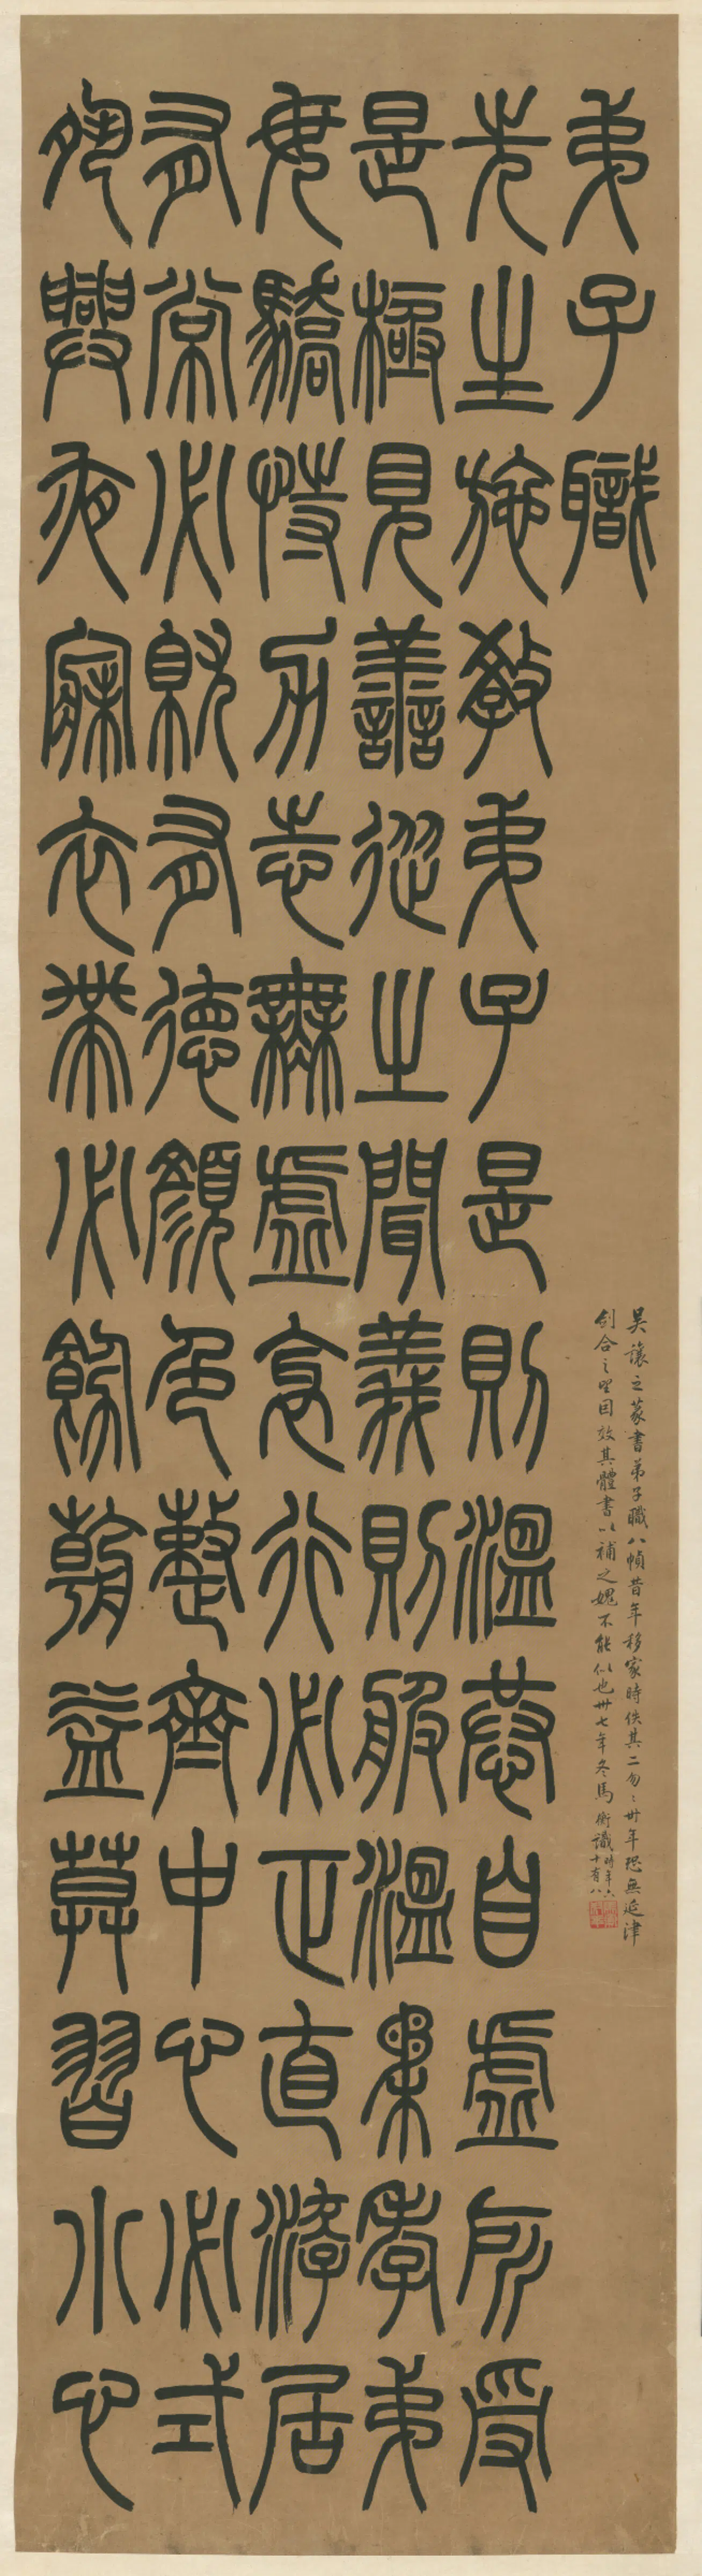 弟子職
先生施教弟子是則溫恭自虛所受
是極見善從之聞義則服溫柔孝弟
毋驕恃力志無虛衺行必正直游居
有常必就有德顏色整齊中心必式
夙興夜寐衣帶必飭朝益莫習小心
吴讓之篆書弟子職八幀昔年移家時佚其二匆匆卅年恐無延津
劍合之望因效其體書以補之媿不能似也卅七年冬馬衡識時年六十有八